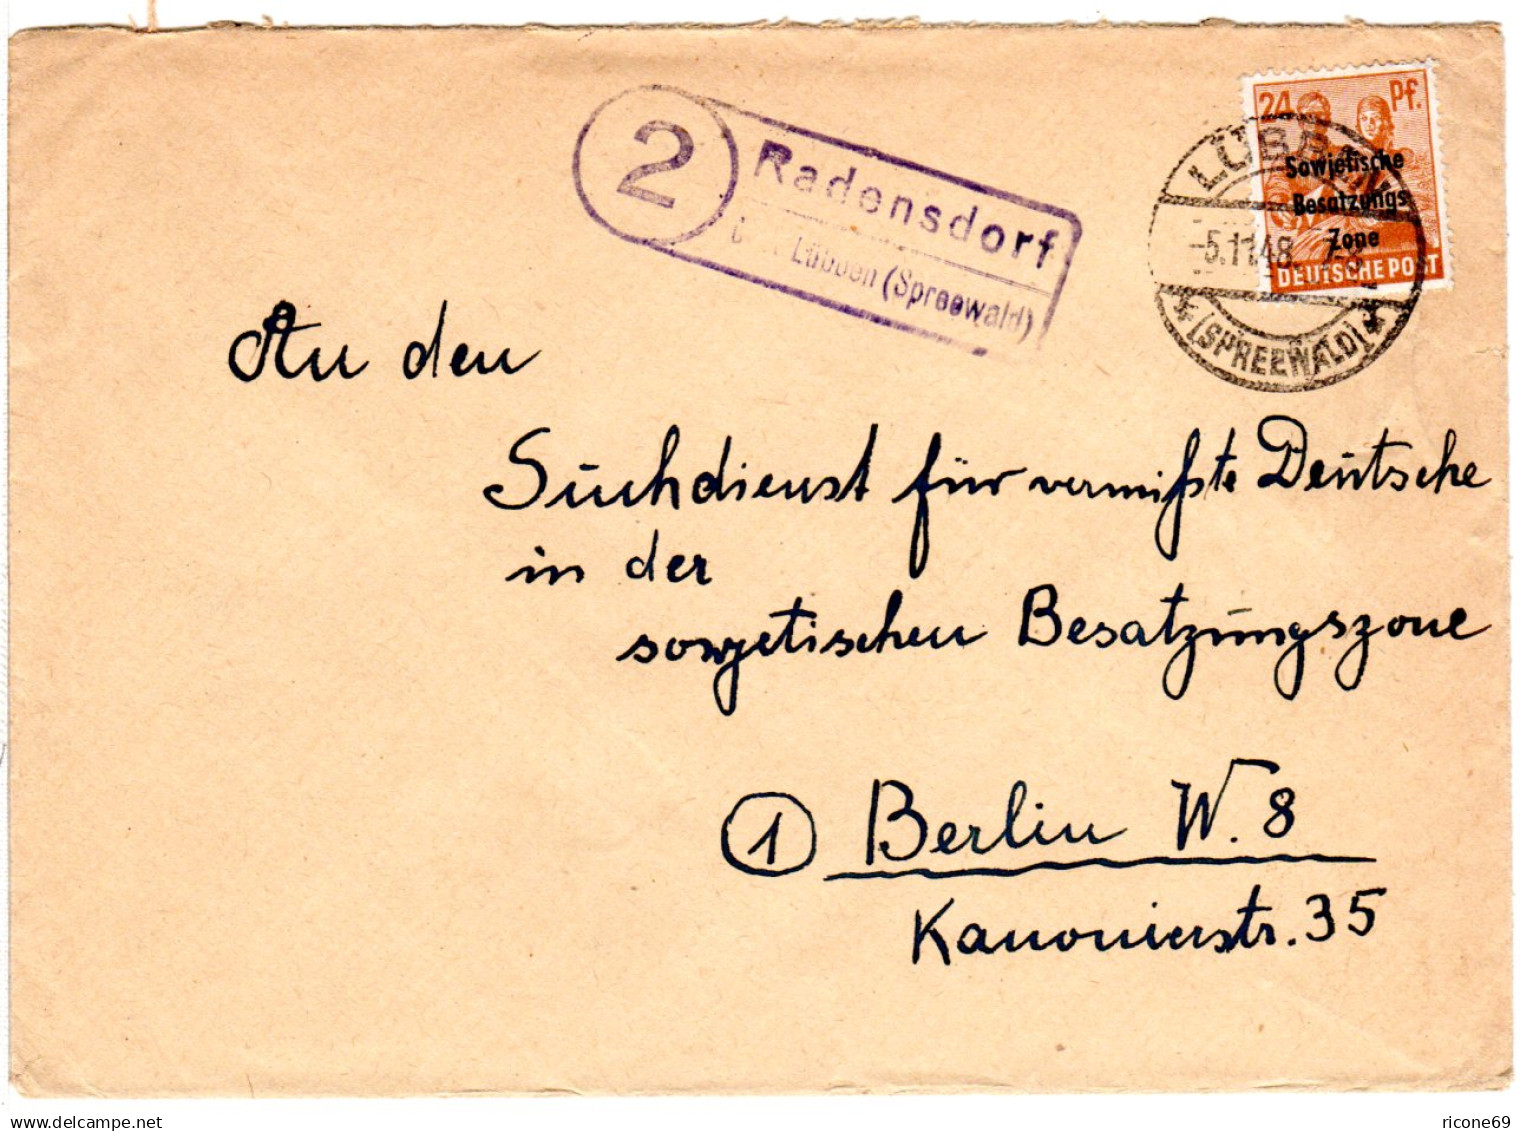 24 Pf.
Sowjetische
Besatzungs
Zone
DEUTSCHE POST
LÜBBEN
-5.11.48. 7-8
(SPREEWALD)
2
Radensdorf
Lübben (Spreewald)
An den
Suchdienst für vermißte Deutsche
in der
sowjetischen Besatzungszone
1 Berlin W. 8
Kanonierstr. 35
www.delcampe.net
ricone69